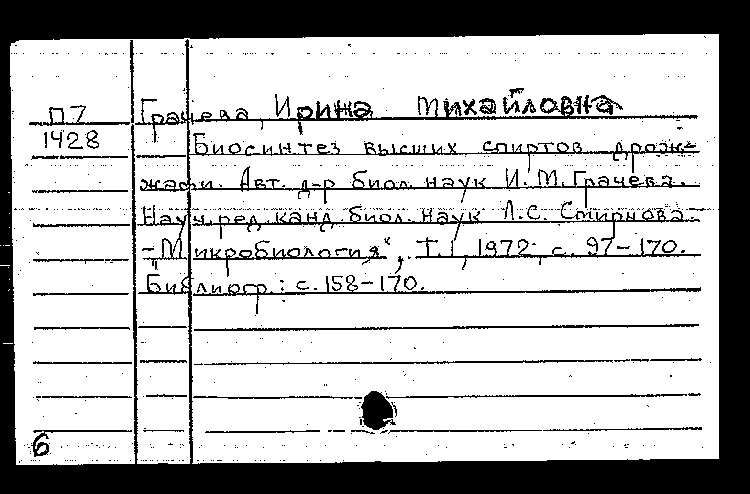 П7 Грачева, Ирина Михайловна
1428 Биосинтез высших спиртов дрож-
жами. Авт. д-р биол. наук И.М. Грачева.
Науч. ред. канд. биол. наук Л.С. Смирнова.
-"Микробиология", Т.1, 1972, с. 97-170.
Библиогр.: с. 158-170.
6